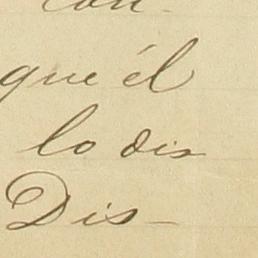 con-
que él
lo dis
Dis-